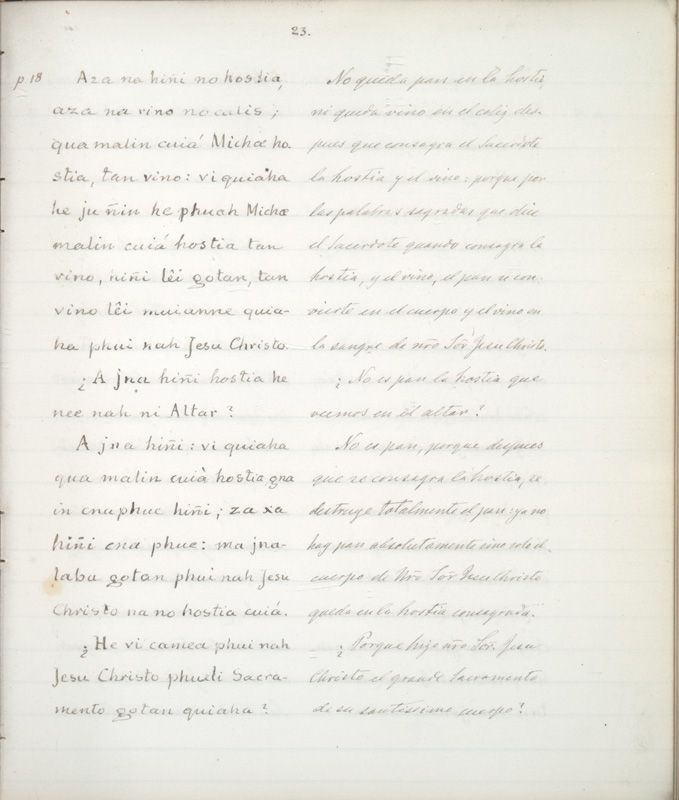 23.
p. 18
Aza na hiñi no hostia,
aza na vino no calis;
qua malin cuiá Michæ ho.
stia, tan vino: vi quiaha
he ju ñin he phuah Michæ
malin cuiá hostia tan
vino, hiñi lêi gotan, tan
vino lêi muianne quia-
ha phui nah Jesu Christo.
¿A jna hiñi hostia he
nee nah ni Altar?
A jna hiñi: vi quiaha
qua malin cuià hostia gna
in cnuphuc hiñi; za xa
hiñi cna phuc: ma jna-
labu gotan phui nah Jesu
Christo na no hostia cuiá.
¿He vi camea phui nah
Jesu Christo phueti Sacra-
mento gotan quiaha?
No queda pan en la hostia,
ni queda vino en el caliz des-
pues que consagra el Sacerdote
la hostia y el vino: porque por
las palabras sagradas que dice
el Sacerdote quando consagra la
hostia, y el vino, el pan se con-
vierte en el cuerpo y el vino en
la sangre de nro Sor. Jesu Christo.
¿No es pan la hostia que
veemos en el altar?
No es pan, porque despues
que se consagra la hostia, se
destruye totalmente el pan: ya no
hay pan absolutamente sino solo el
cuerpo de Nro Sor. Jesu Christo
queda en la hostia consagrada.
¿Porque hizo nro Sor. Jesu
Christo el grande Sacramento
de su santissimo cuerpo?